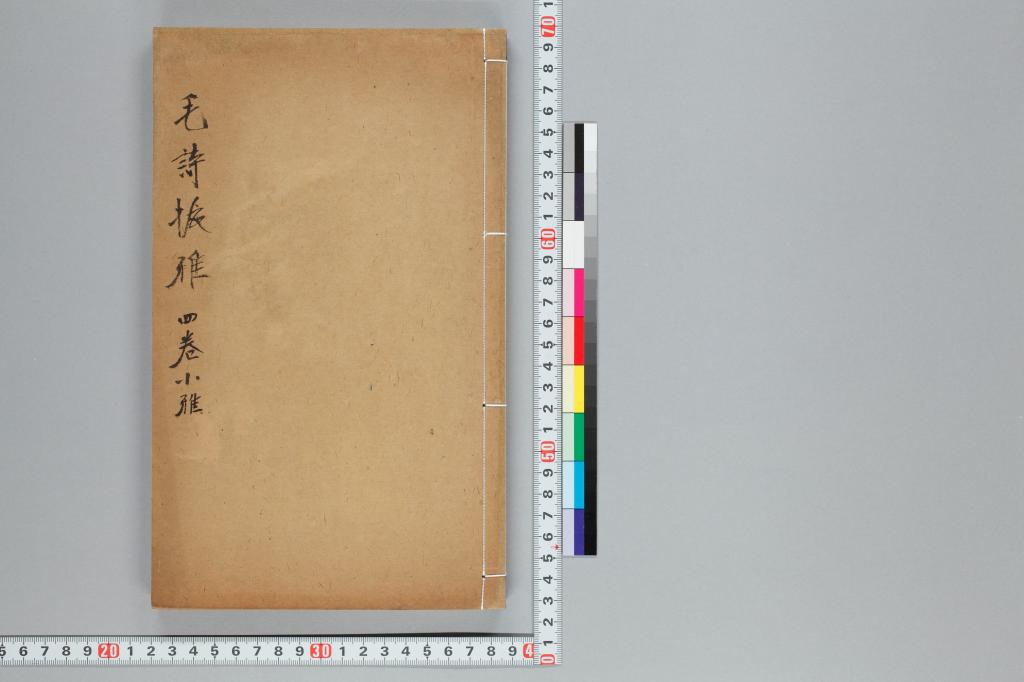 毛詩振雅 四卷小雅
70
9
8
7
6
5
4
3
2
1
60
9
8
7
6
5
4
3
2
1
50
9
8
7
6
5
4
3
2
1
0
5 6 7 8 9 20 1 2 3 4 5 6 7 8 9 30 1 2 3 4 5 6 7 8 9 4